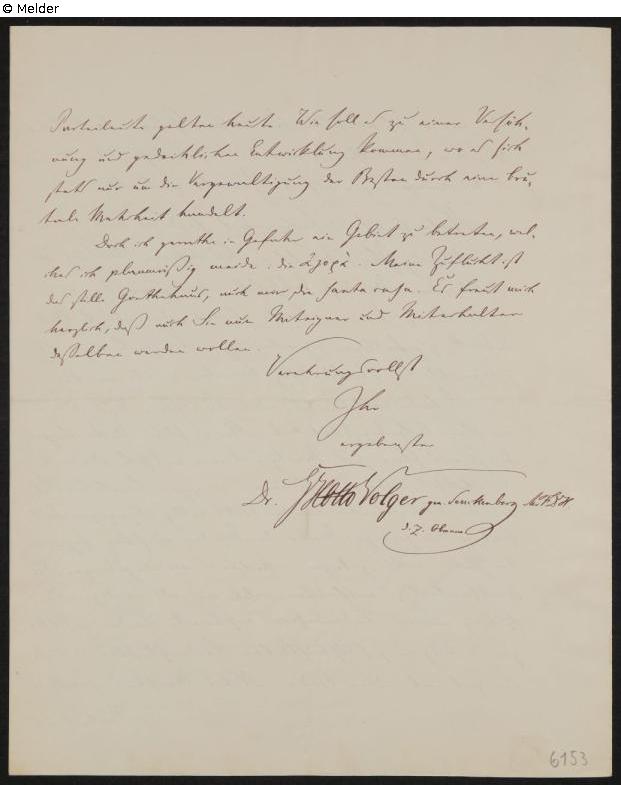 © Melder
Parteileute gelten heute. Wie soll es zu einer Versöh-
nung und gedeihlichen Entwicklung kommen, wo es sich
stets nur um die Vergewaltigung der Besten durch eine bru-
tale Mehrheit handelt.
Doch ich gerathe in Gefahr ein Gebiet zu betreten, wel-
ches ich planmäßig meide: die Ἀγορὰ. Meine Zuflucht ist
das stille Goethehaus, auch mir die santa casa. Es freut mich
herzlich, daß auch Sie nun Miteigner und Miterhalter
desselben werden wollen.
Verehrungsvollst
Ihr
ergebenster
Dr. GHOtto Volger gen. Senckenberg
d. Z. Obmann
6153